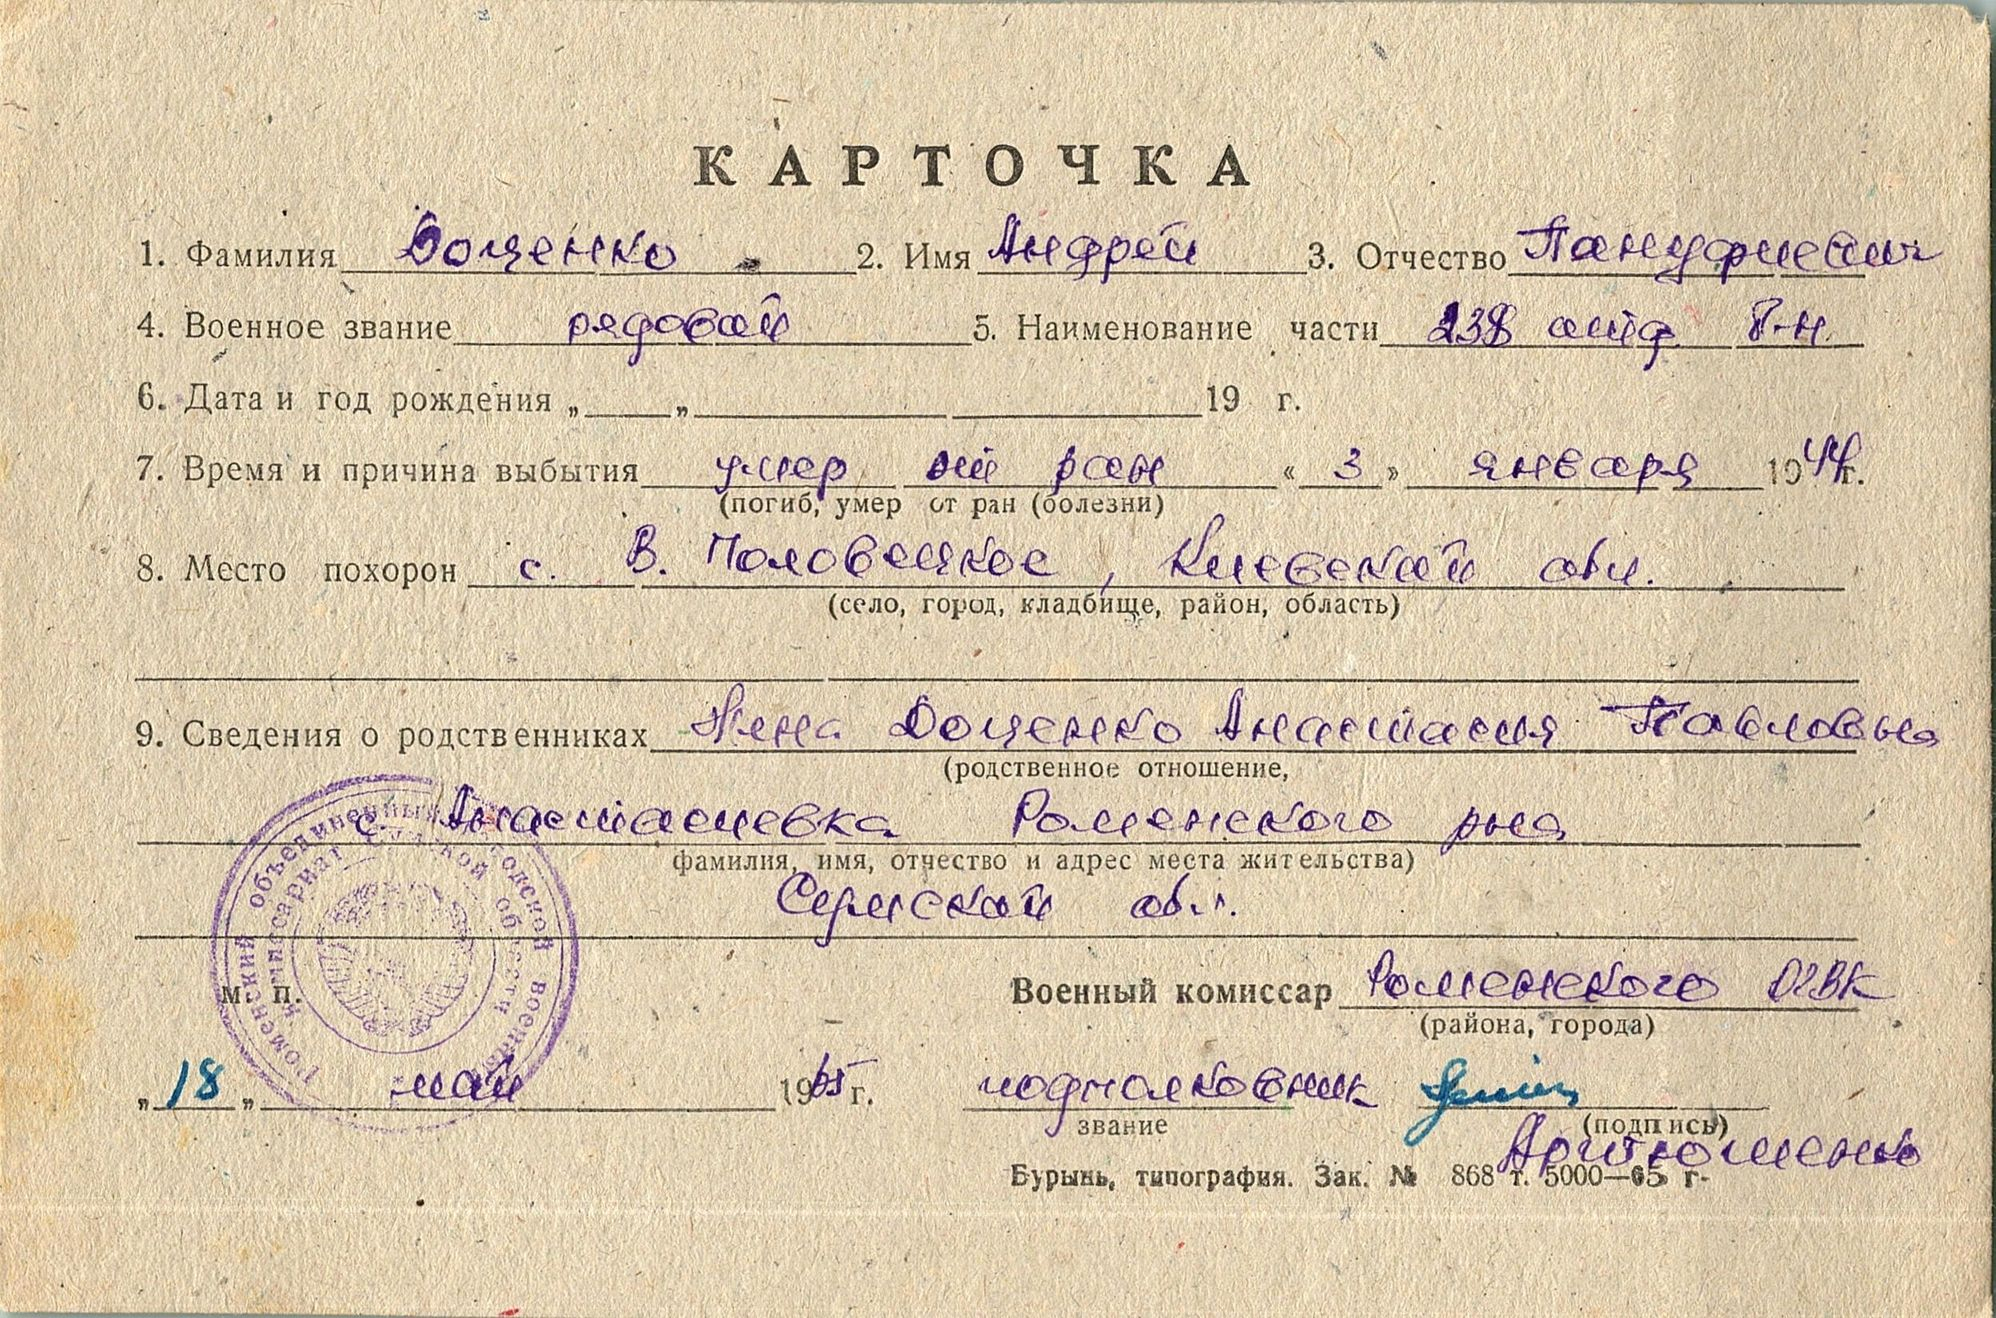 КАРТОЧКА
1. Фамилия Доценко 2. Имя Андрей 3. Отчество Пануфиевич
4. Военное звание рядовой 5. Наименование части 238 б-н.
6. Дата и год рождения „ „ 19 г.
7. Время и причина выбытия умер от ран « 3 » января 1944г.
(погиб, умер от ран (болезни)
8. Место похорон с. В. Половецкое, Киевской обл.
(село, город, кладбище, район, область)
9. Сведения о родственниках Жена Доценко Анастасия Павловна
(родственное отношение,
с. Анастасиевка Роменского р-на
фамилия, имя, отчество и адрес места жительства)
Сумской обл.
Роменский объединенный городской военный комиссариат Сумской области
м. п.
Военный комиссар Роменского ОГВК
(района, города)
„18„ май 1965 г. подполковник
звание (подпись)
Артюшенко
Бурынь, типография. Зак. № 868 т. 5000—65 г.